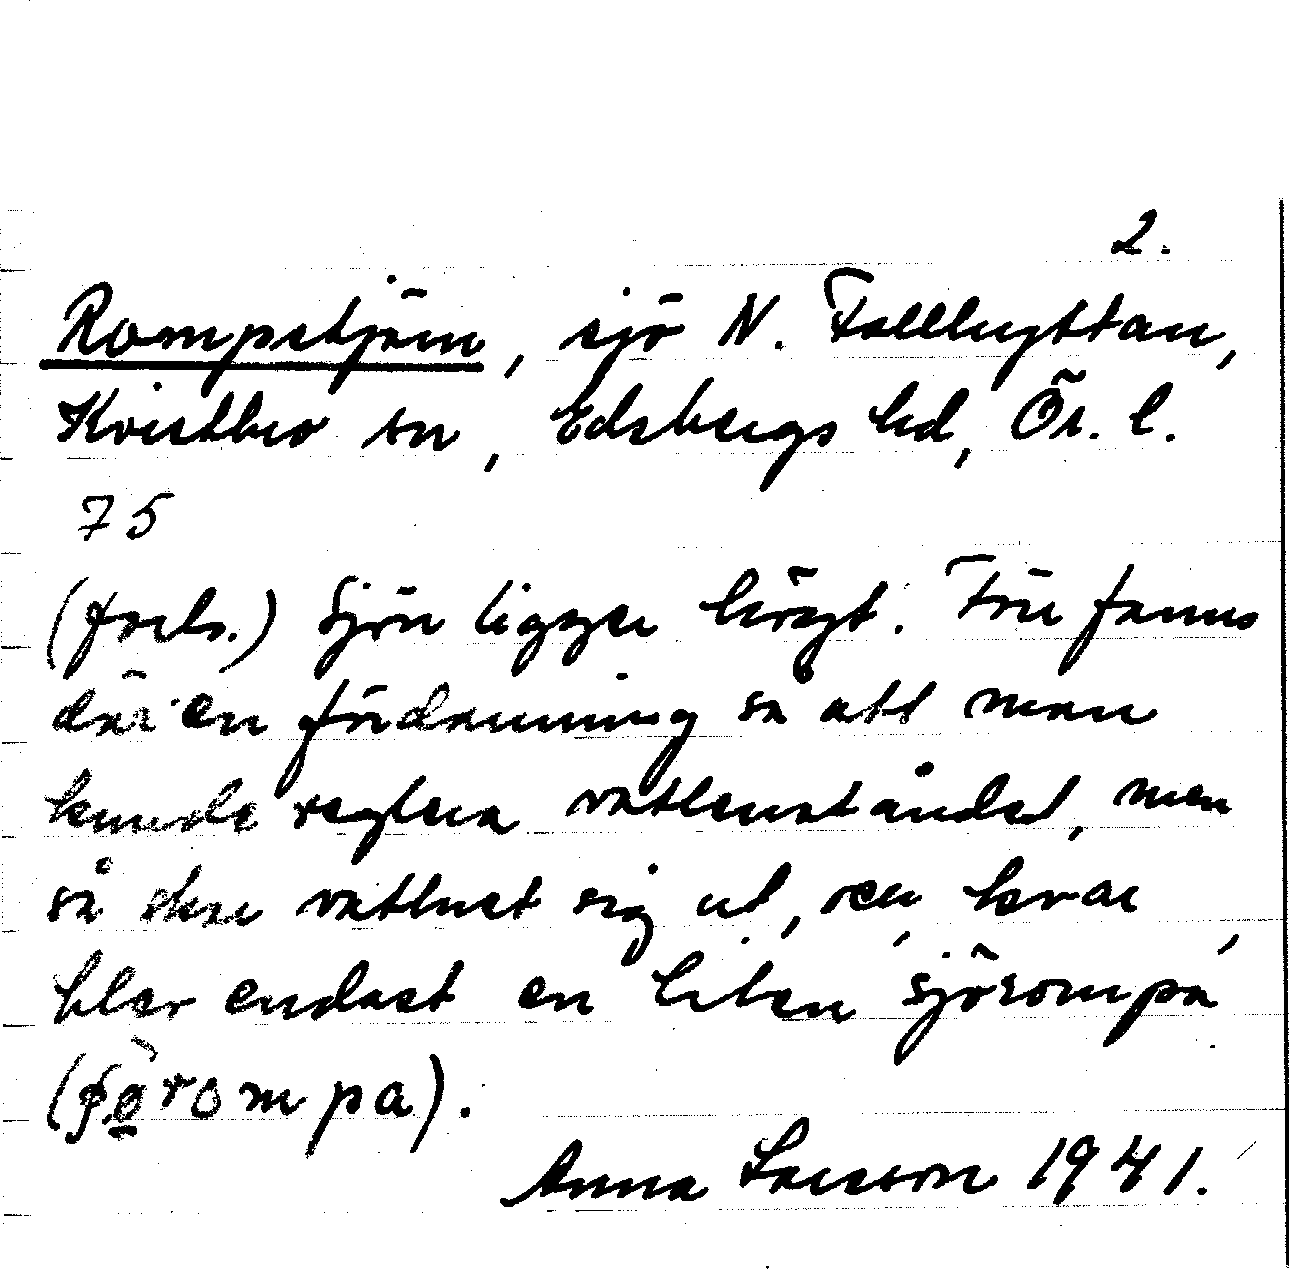 2.
Rompetjärn, sjö N. Fallhyttan,
Kvistbro sn, Edsbergs hd, Ör. l.
75
(forts.) Sjön ligger högt. Förr fanns
där en fördämning så att man
kunde reglera vattenståndet, men
så skar vattnet sig ut, och kvar
blev endast en liten sjörompa
rompa).
Anna Larsson 1941.